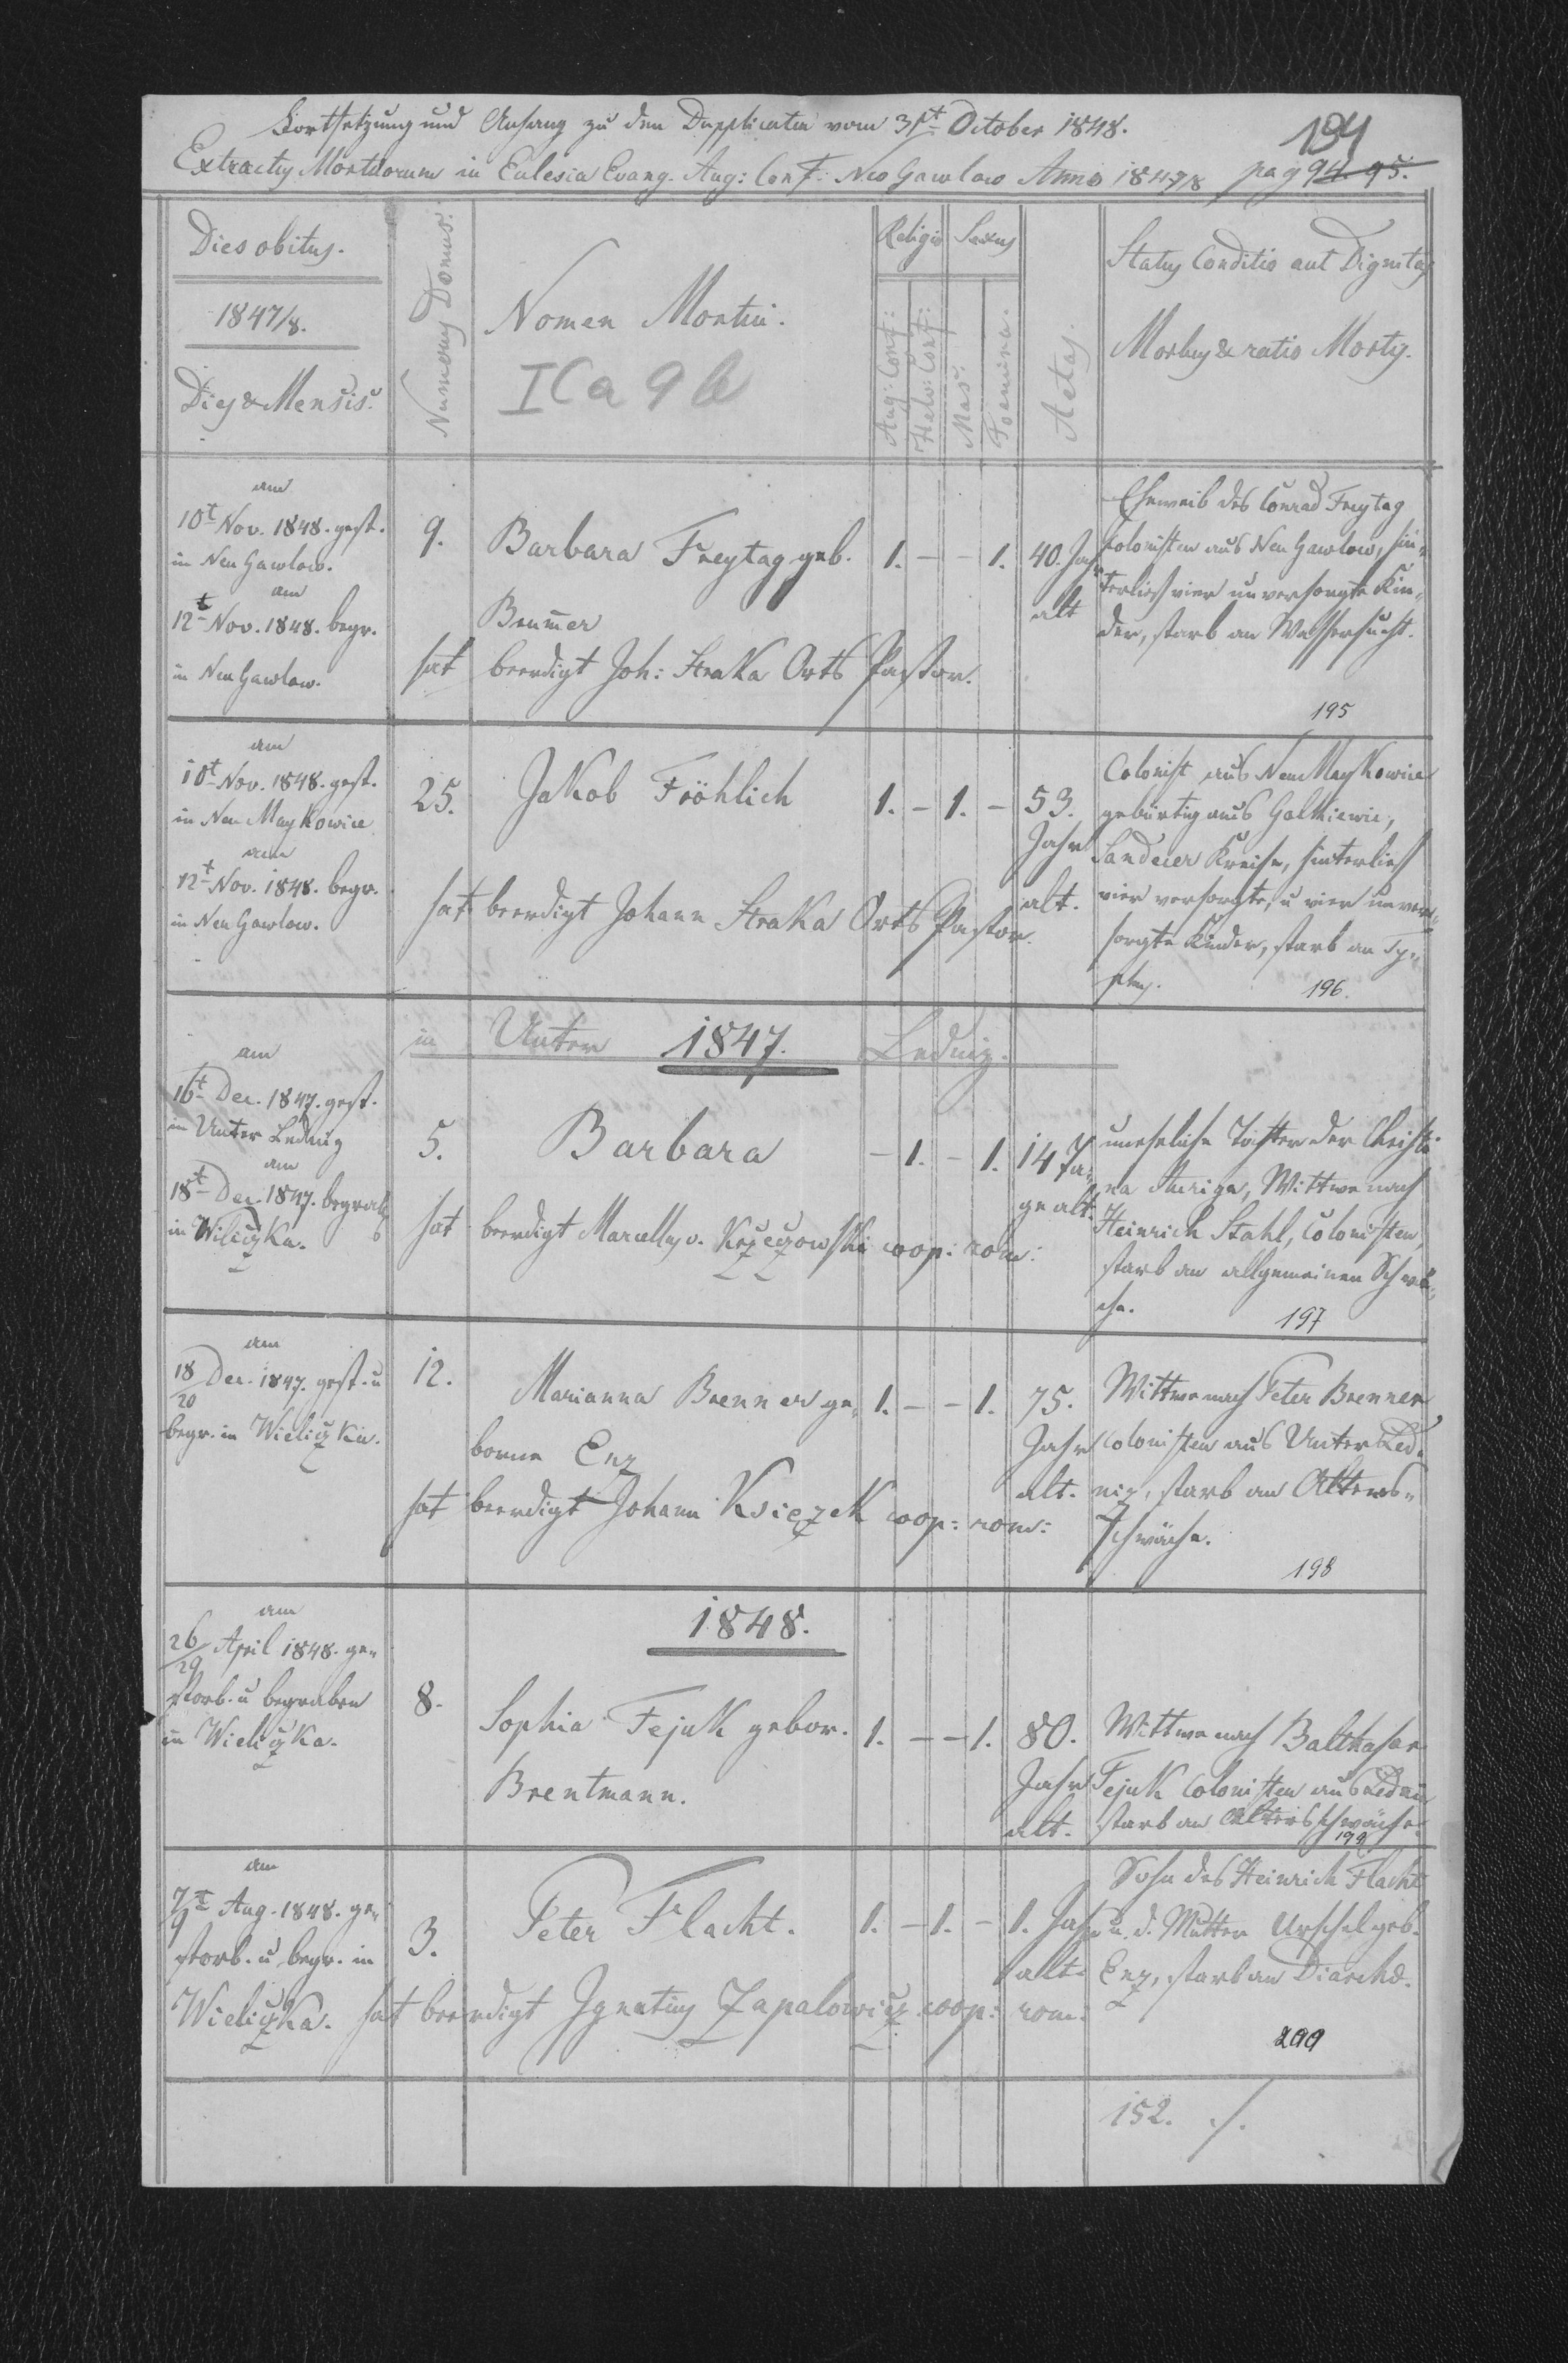 Fortsetzung und Anhang zu den Dupplicaten vom 31st October 1848.
194
Extractus Mortuorum in Eclesia Evang. Aug: Conf: Neo Gawlow Anno 1847/8 pag 94. 95.
Dies obitus.
1847/8.
Dies & Mensis.
Numerus Domus.
Nomen Mortui.
I C a 9 b
Religio
Aug: Conf:
Helv: Conf:
Sexus
Mas.
Foemina.
Aetas.
Status Conditio aut Dignitas
Morbus & ratio Mortis.
am
10t Nov. 1848. gest.
in Neu Gawlow.
am
12t Nov. 1848. begr.
in Neu Gawlow.
9.
Barbara Freytag geb.
Brum̄er
hat beerdigt Joh: Straka Orts Pastor.
1. - - 1.
40. Jahr
alt
Eheweib des Conrad Freytag
Colonisten aus Neu Gawlow, hin-
terließ vier unversorgte Kin-
der, starb an Wassersucht.
195
am
10t Nov. 1848. gest.
in Neu Maykowice
am
12t Nov. 1848. begr.
in Neu Gawlow.
25.
Jakob Fröhlich
hat beerdigt Johann Straka Orts Pastor.
1. - 1. -
53.
Jahr
alt.
Colonist aus Neu Maykowice
gebürtig aus Golkiewic,
Sandecer Kreise, hinterließ
vier versorgte, u vier unver-
sorgte Kinder, starb an Ty-
phus.
196.
in Unter 1847. Lednig.
am
16t Dec. 1847. gest.
in Unter Lednig
am
18t Dec. 1847. begrab
in Wiliczka.
5.
Barbara
hat beerdigt Marcellus v. coop: rom:
- 1. - 1.
14 Ta-
ge alt.
uneheliche Tochter der Christi-
na Wittwe nach
Heinrich Stahl, Colonisten,
starb an allgemeinen Schwä-
che.
197
am
18/20 Dec. 1847. gest. u
begr. in Wieliczka.
12.
Marianna Brenner ge-
borne Enz
hat beerdigt Johann Księzek coop: rom:
1. - - 1.
75.
Jahr
alt.
Wittwe nach Peter Brenner
Colonisten aus Unter Led-
nig, starb an Alters-
schwäche.
198
1848.
am
26/29 April 1848. ge-
storb. u begraben
in Wieliczka.
8.
Sophia Fejuk gebor.
Brentmann.
1. - - 1.
80.
Jahr
alt.
Wittwe nach Balthasar
Fejuk Colonisten aus Lednig
starb an Altersschwäche.
199
am
7/9t Aug. 1848. ge-
storb. u begr. in
Wieliczka.
3.
Peter Flacht.
hat beerdigt Ignatius Zapalowicz coop: rom:
1. - 1. -
1. Jahr
alt.
Sohn des Heinrich Flacht
u. d. Mutter Urschel geb.
Enz, starb an Diarchö.
200
152. ./.